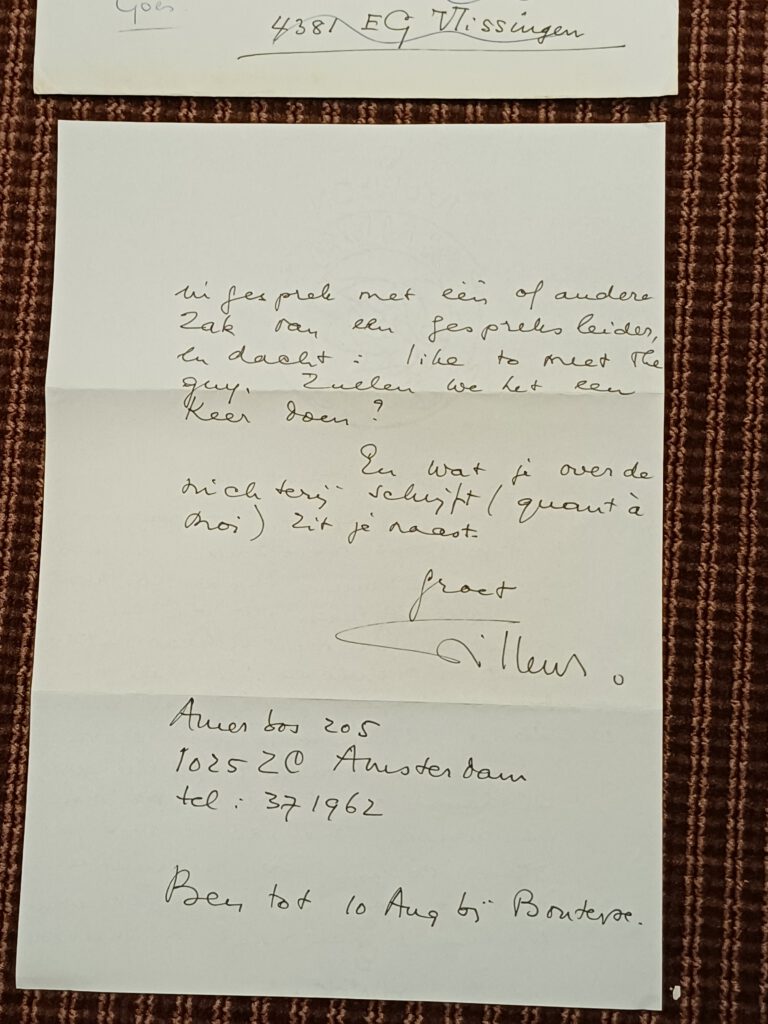 Goes.
4381 EG Vlissingen
in gesprek met één of andere
zak van een gespreksleider,
en dacht: like to meet the
guy. Zullen we het een
keer doen?
En wat je over de
nichterij schrijft (quant à
moi) zit je naast.
groet
Willem.
Amerbos 205
1025 ZC Amsterdam
tel: 371962
Ben tot 10 Aug bij Bouterse.